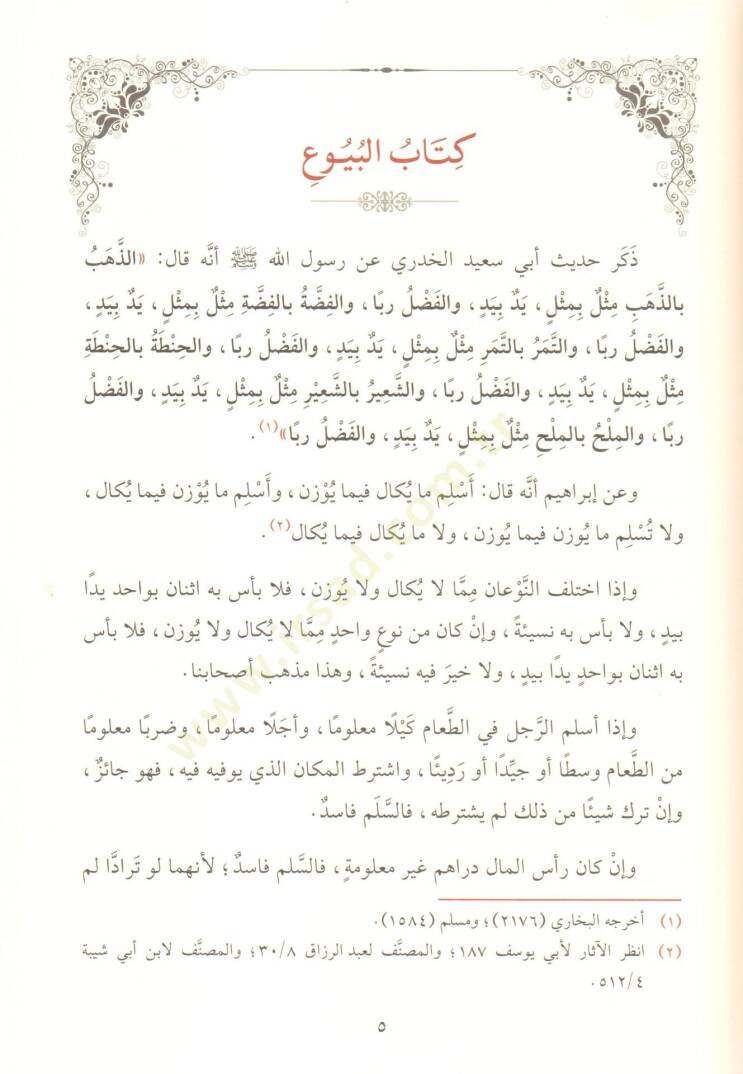 كِتَابُ البُيُوعِ
ذَكَر حديث أبي سعيد الخدري عن رسول الله ﷺ أنَّه قال: «الذَّهَبُ
بالذَّهَبِ مِثْلٌ بِمِثْلٍ، يَدٌ بِيَدٍ، والفَضْلُ ربًا، والفِضَّةُ بالفِضَّةِ مِثْلٌ بِمِثْلٍ، يَدٌ بِيَدٍ،
والفَضْلُ ربًا، والتَّمَرُ بالتَّمَرِ مِثْلٌ بِمِثْلٍ، يَدٌ بِيَدٍ، والفَضْلُ ربًا، والحِنْطَةُ بالحِنْطَةِ
مِثْلٌ بِمِثْلٍ، يَدٌ بِيَدٍ، والفَضْلُ ربًا، والشَّعِيرُ بالشَّعِيْرِ مِثْلٌ بِمِثْلٍ، يَدٌ بِيَدٍ، والفَضْلُ
ربًا، والمِلْحُ بالمِلْحِ مِثْلٌ بِمِثْلٍ، يَدٌ بِيَدٍ، والفَضْلُ ربًا»(١).
وعن إبراهيم أنَّه قال: أَسْلِم ما يُكال فيما يُوْزن، وأَسْلِم ما يُوْزن فيما يُكال،
ولا تُسْلِم ما يُوزن فيما يُوزن، ولا ما يُكال فيما يُكال(٢).
وإذا اختلف النَّوْعان مِمَّا لا يُكال ولا يُوْزن، فلا بأس به اثنان بواحد يدًا
بيدٍ، ولا بأس به نسيئةً، وإنْ كان من نوعٍ واحدٍ مِمَّا لا يُكال ولا يُوْزن، فلا بأس
به اثنان بواحدٍ يدًا بيدٍ، ولا خيرَ فيه نسيئةً، وهذا مذهب أصحابنا.
وإذا أسلم الرَّجل في الطَّعام كَيْلًا معلومًا، وأجَلًا معلومًا، وضربًا معلومًا
من الطَّعام وسطًا أو جيِّدًا أو رَدِيئًا، واشترط المكان الذي يوفيه فيه، فهو جائزٌ،
وإنْ ترك شيئًا من ذلك لم يشترطه، فالسَّلَم فاسدٌ.
وإنْ كان رأس المال دراهم غير معلومةٍ، فالسَّلم فاسدٌ؛ لأنهما لو تَرادَّا لم
(١) أخرجه البخاري (٢١٧٦)؛ ومسلم (١٥٨٤).
(٢) انظر الآثار لأبي يوسف ١٨٧؛ والمصنَّف لعبد الرزاق ٣٠/٨؛ والمصنَّف لابن أبي شيبة
٥١٢/٤.
٥
www.irsad.com.tr